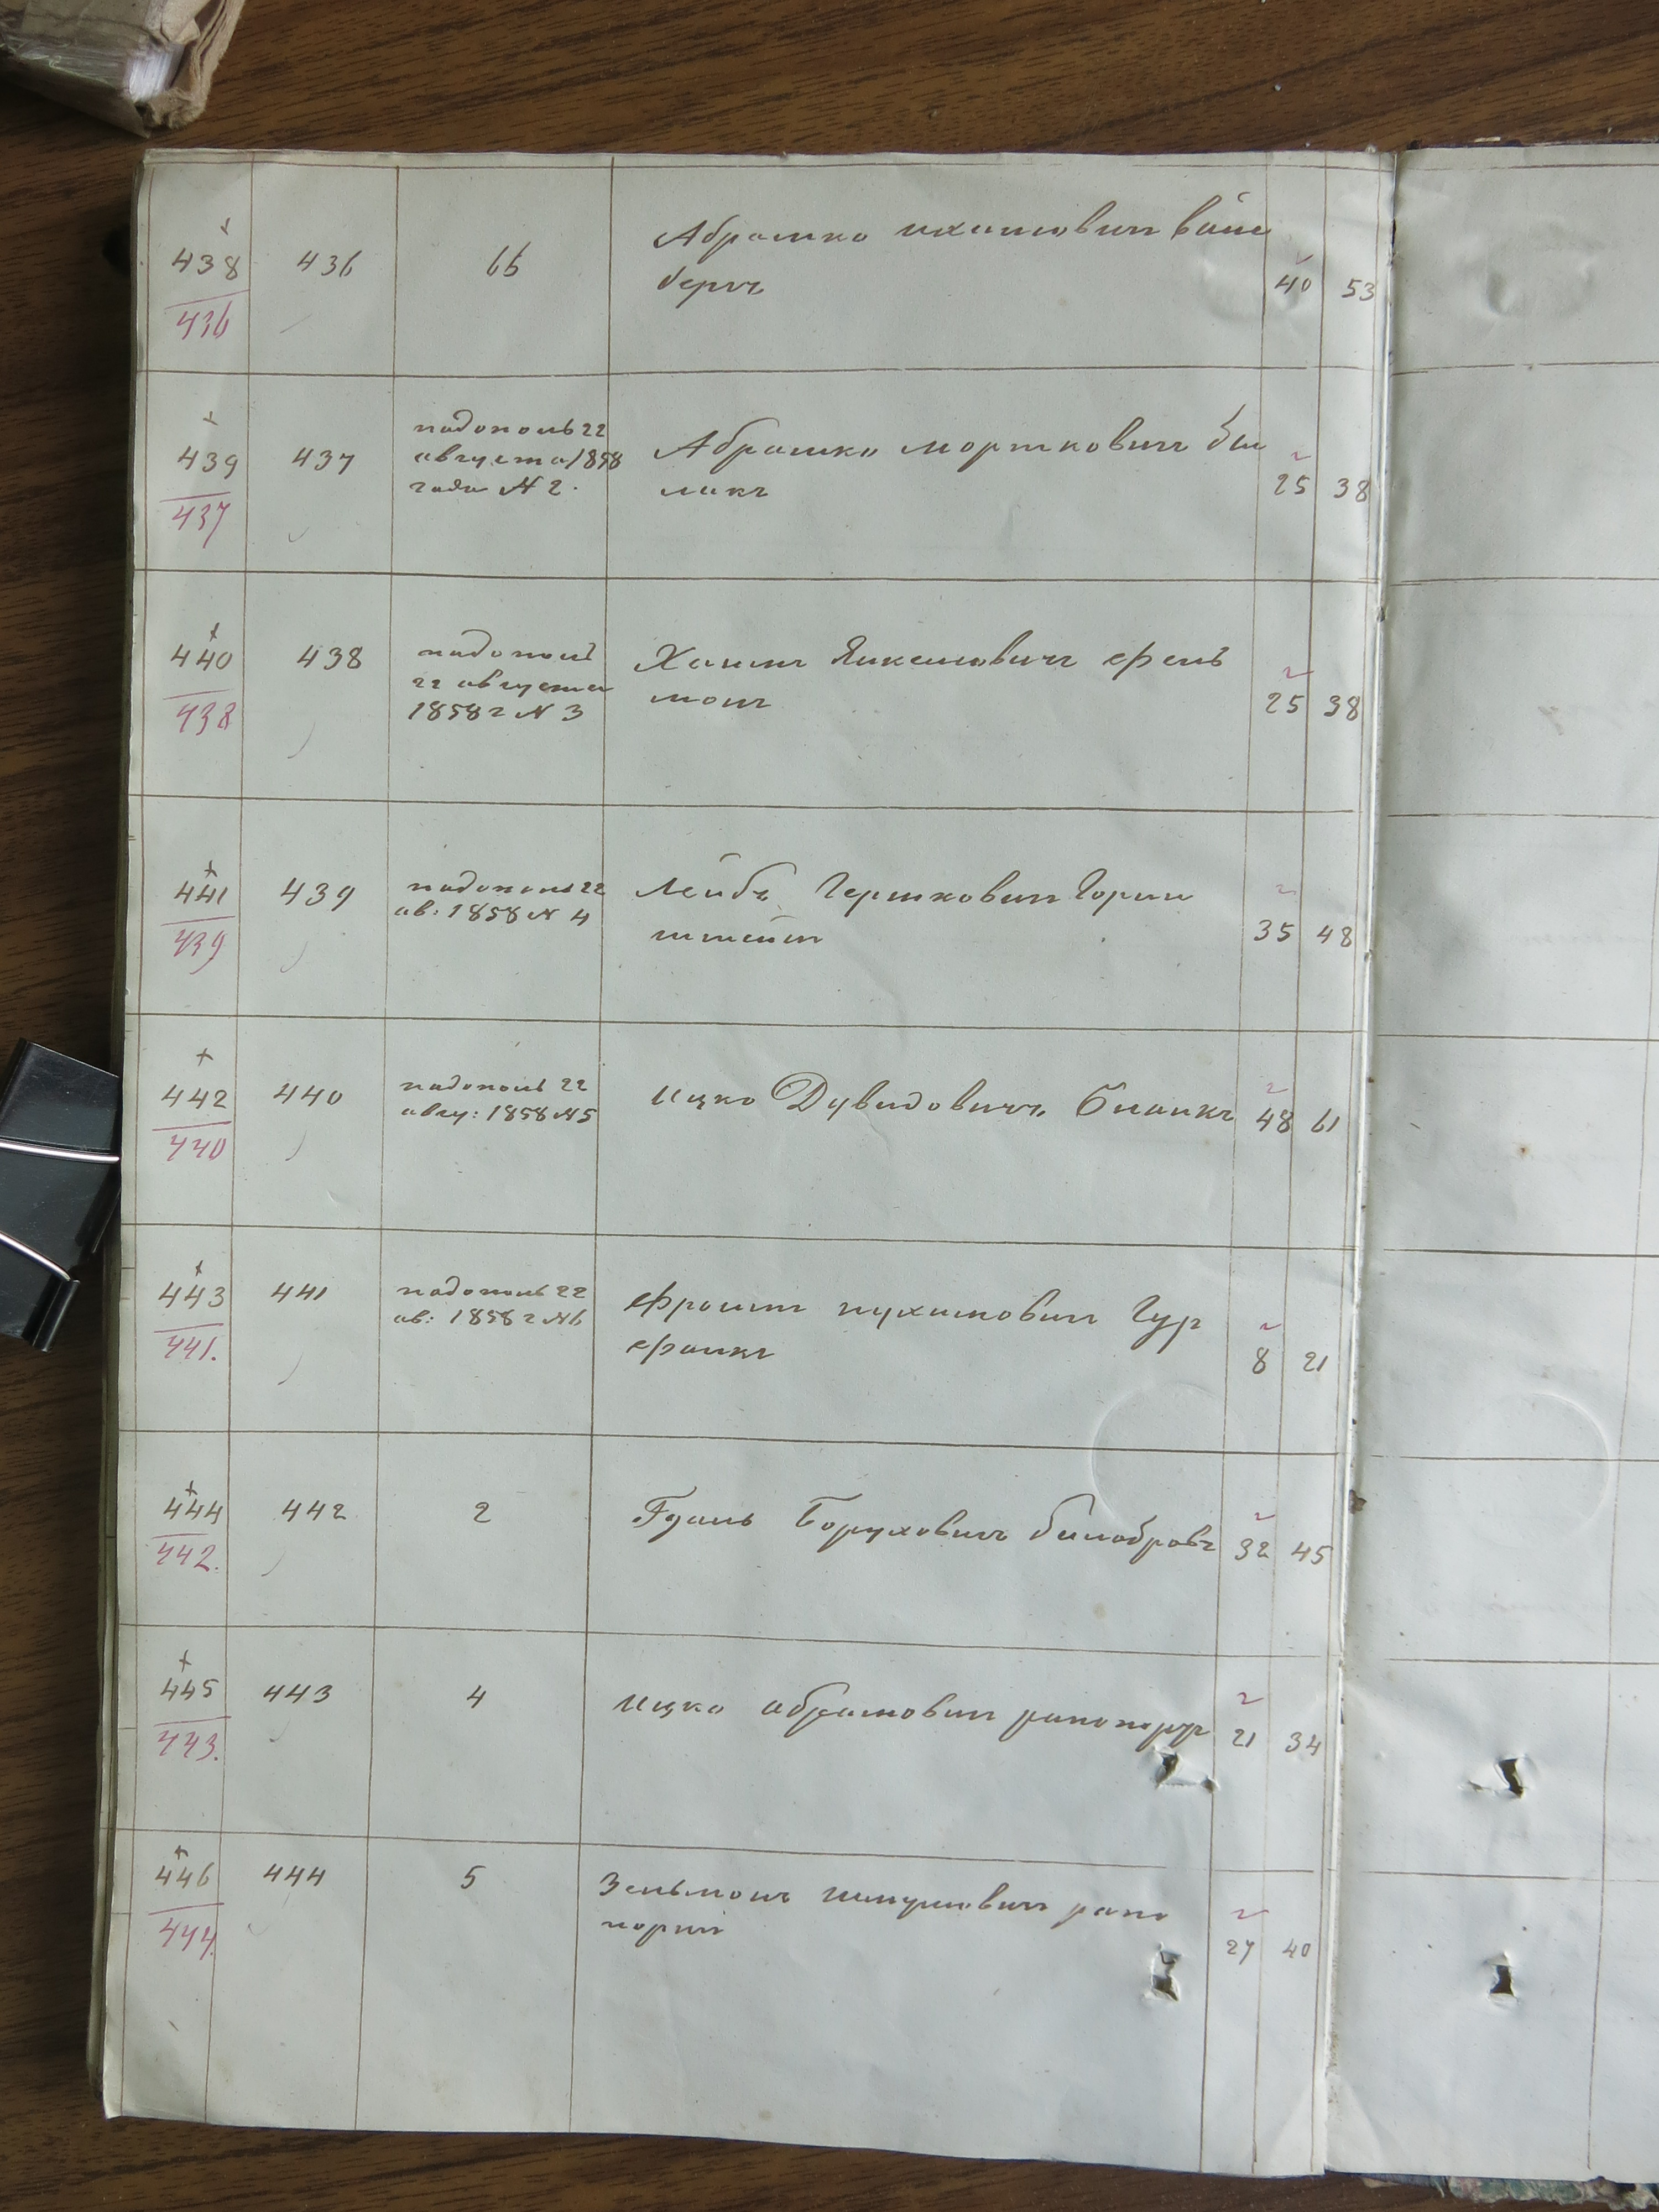 438 436 66 Абрамко ихамович вайс
берг 40 53
436
439 437 по допол 22 августа 1858 года № 2. Абрамко морткович би
ликъ 25 38
437
440 438 по допол 22 августа 1858 г № 3 Хаимъ Янкелевичъ френь
монъ 25 38
438
441 439 по допол 22 ав: 1858 № 4 Лейба Гершкович Горин
штейн 35 48
439
442 440 по допол 22 авгу: 1858 № 5 ицко Дувидовичъ Бланкъ 48 61
440
443 441 по допол 22 ав: 1858 г № 6 Фроим нухимович Гур
франкъ 8 21
441.
444 442 2 Борухович билобровъ 32 45
442.
445 443 4 ицко абрамович рапопорт 21 34
443.
446 444 5 Зельманъ шмулович рапо
порт 27 40
444.